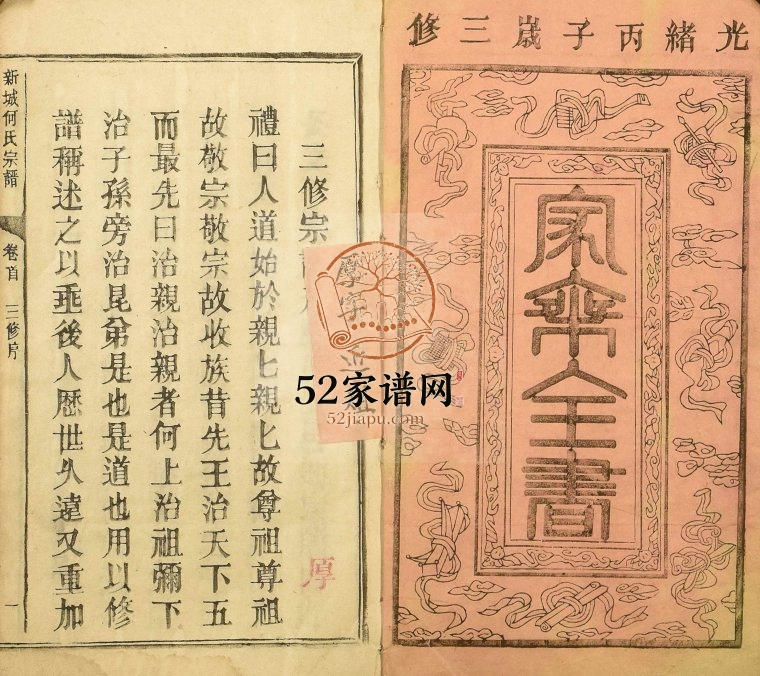 光緒丙子歲三修
家齊全書
三修宗
禮曰人道始於親匕親匕故尊祖尊祖
故敬宗敬宗故收族昔先王治天下五
而最先曰治親治親者何上治祖彌下
治子孫旁治昆弟是也是道也用以修
譜稱述之以垂後人歴世久遠又重加
新城何氏宗譜
卷首
三修序
一
厚
厚字
52家谱网
52jiapu.com